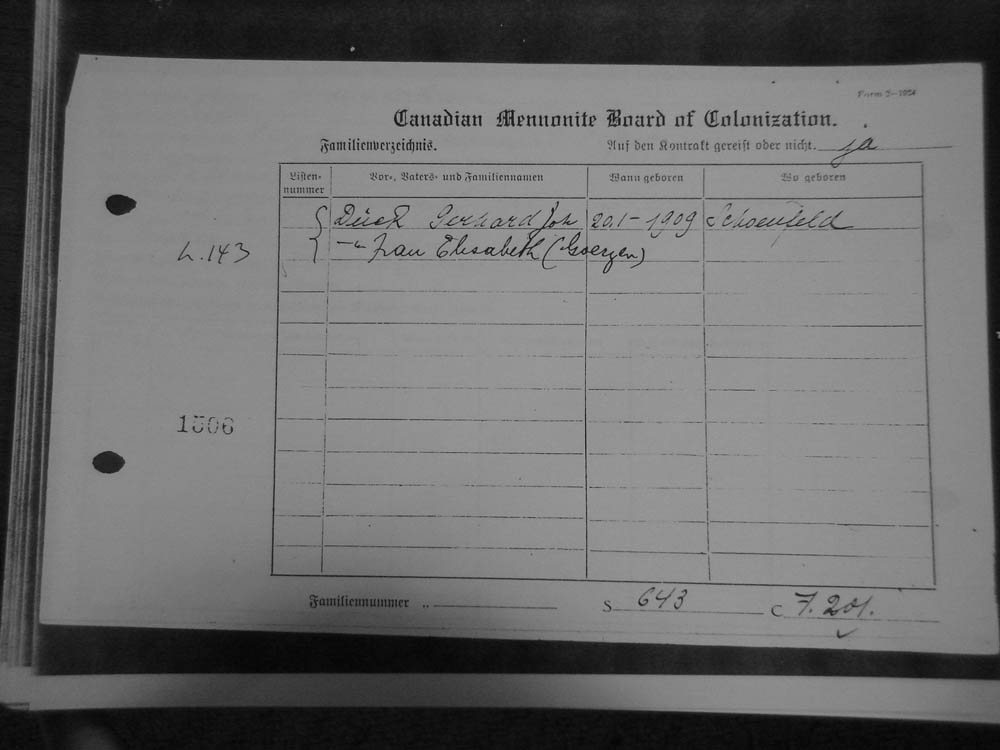 Form 5—1924
Canadian Mennonite Board of Colonization.
Familienverzeichnis. Auf den Kontrakt gereist oder nicht. ja
Listen-nummer Vor-, Vaters- und Familiennamen Wann geboren Wo geboren
Dück Gerhard Joh 20.1-1909 Schoenfeld
L.143 -"- Frau Elisabeth (Goerzen)
1506
Familiennummer .. S 643 C 7.201.